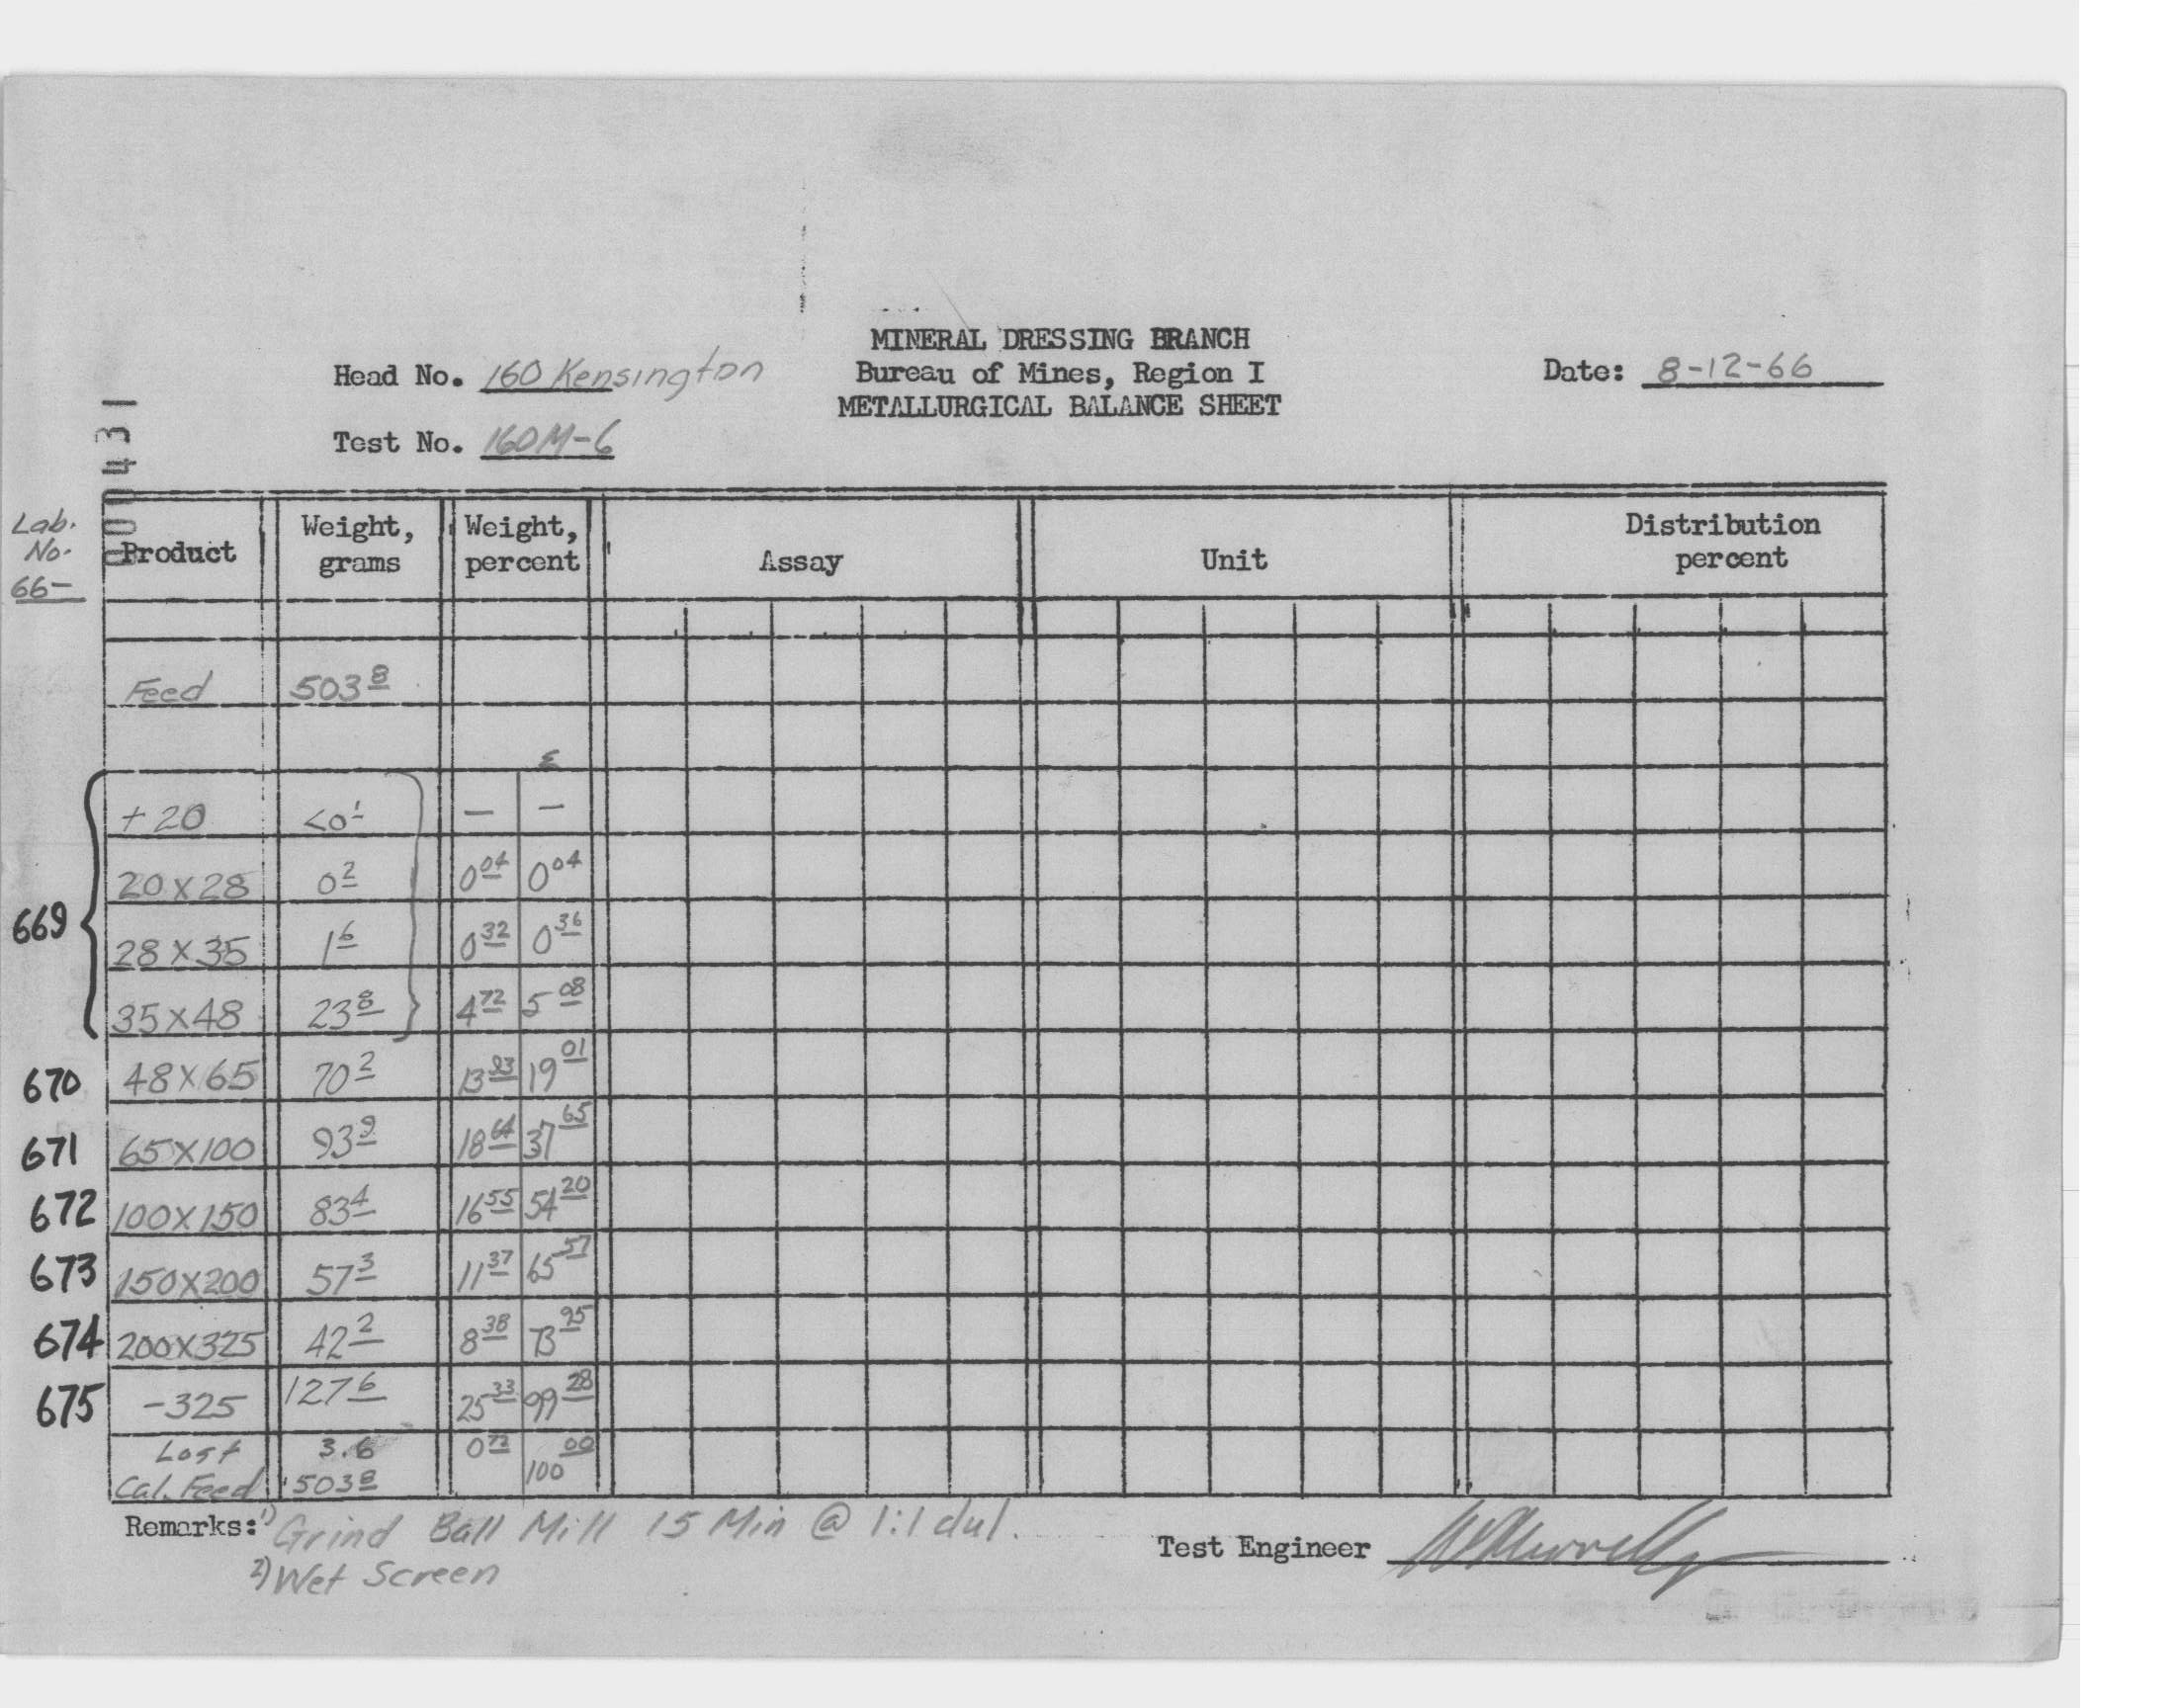 MINERAL DRESSING BRANCH
Head No. 160 Kensington Bureau of Mines, Region I Date: 8-12-66
METALLURGICAL BALANCE SHEET
Test No. 160M-6
000431
Lab. No. 66- Product Weight, grams Weight, percent Assay Unit Distribution percent
Feed 503 8
Σ
+20 <0 1 — —
20X28 0 2 0 04 0 04
669 28X35 1 6 0 32 0 36
35X48 23 8 4 72 5 08
670 48X65 70 2 13 93 19 01
671 65X100 93 9 18 64 37 65
672 100X150 83 4 16 55 54 20
673 150X200 57 3 11 37 65 57
674 200X325 42 2 8 38 73 95
675 -325 127 6 25 33 99 28
Lost 3.6 0 72 100 00
Cal. Feed 503 8
Remarks: 1) Grind Ball Mill 15 Min @ 1:1 dul.
Test Engineer
2) Wet Screen